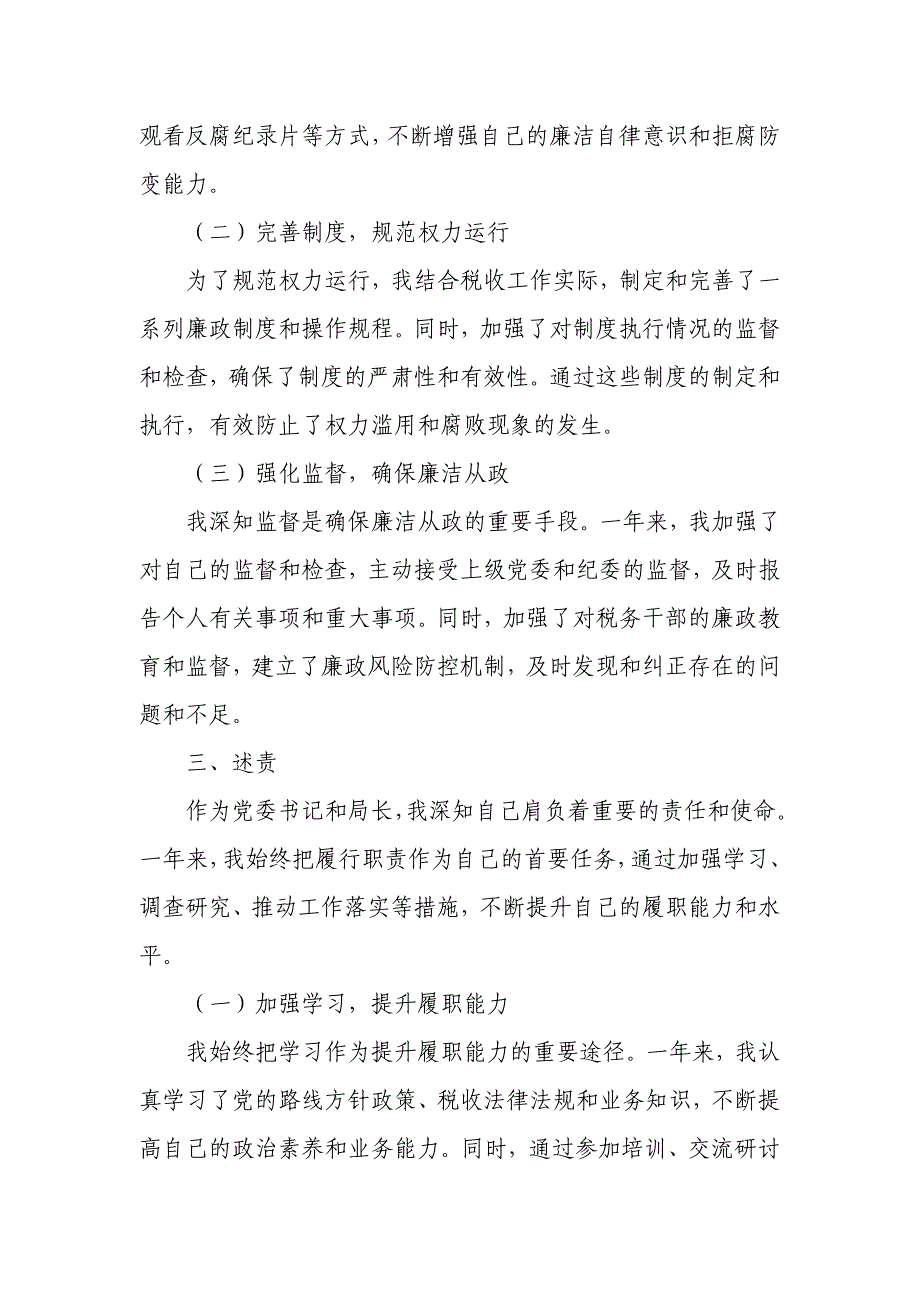 观看反腐纪录片等方式，不断增强自己的廉洁自律意识和拒腐防
变能力。
（二）完善制度，规范权力运行
为了规范权力运行，我结合税收工作实际，制定和完善了一
系列廉政制度和操作规程。同时，加强了对制度执行情况的监督
和检查，确保了制度的严肃性和有效性。通过这些制度的制定和
执行，有效防止了权力滥用和腐败现象的发生。
（三）强化监督，确保廉洁从政
我深知监督是确保廉洁从政的重要手段。一年来，我加强了
对自己的监督和检查，主动接受上级党委和纪委的监督，及时报
告个人有关事项和重大事项。同时，加强了对税务干部的廉政教
育和监督，建立了廉政风险防控机制，及时发现和纠正存在的问
题和不足。
三、述责
作为党委书记和局长，我深知自己肩负着重要的责任和使命。
一年来，我始终把履行职责作为自己的首要任务，通过加强学习、
调查研究、推动工作落实等措施，不断提升自己的履职能力和水
平。
（一）加强学习，提升履职能力
我始终把学习作为提升履职能力的重要途径。一年来，我认
真学习了党的路线方针政策、税收法律法规和业务知识，不断提
高自己的政治素养和业务能力。同时，通过参加培训、交流研讨